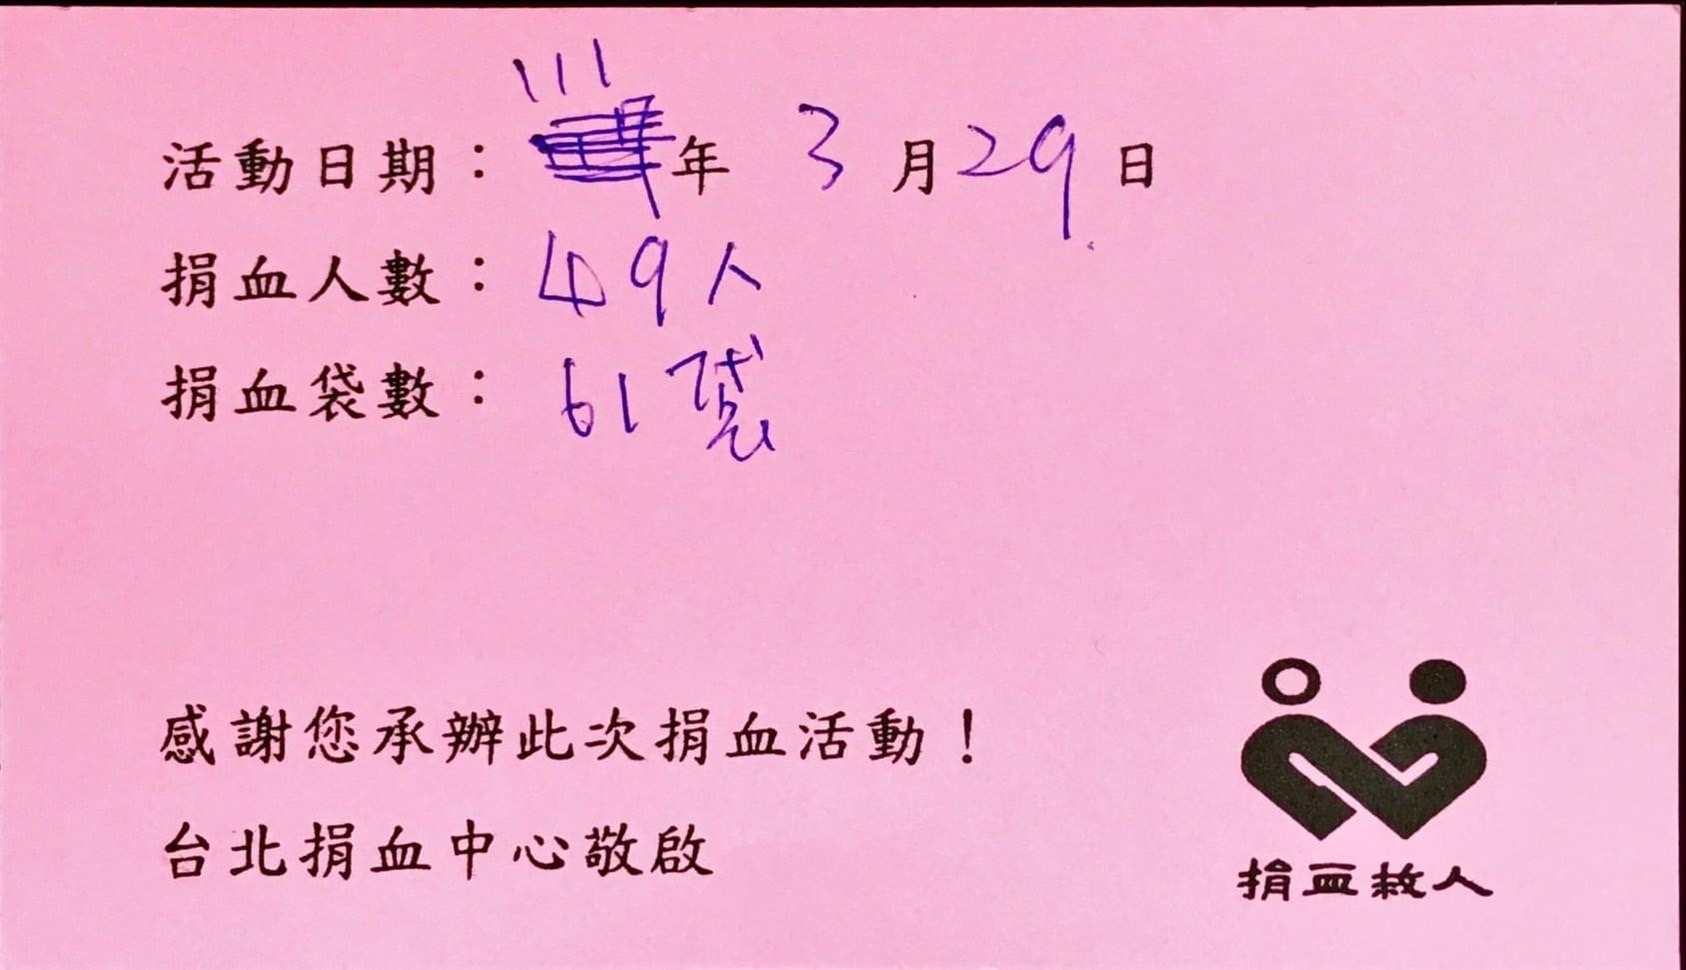 活動日期：111年 3月29日
捐血人數：49人
捐血袋數：61袋
感謝您承辦此次捐血活動！
台北捐血中心敬啟
捐血救人